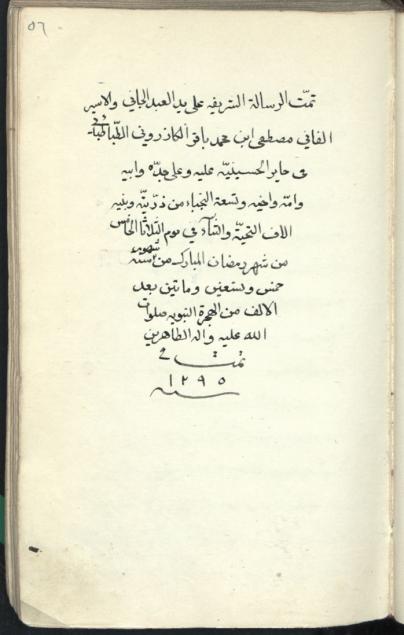 ٥٦
تمّت الرسالة الشريفه على يد العبد الجاني والاسير
الفاني مصطفى ابن محمد باقر الكازروني الطّباطبائي
في حاير الحسينيّه عليه وعلى جدّه وابيه
وامّه واخيه وتسعة النجباء من ذرّيّته وبنيه
الاف التحيّة والثنآء في يوم الثلاثا الخامس
من شهر رمضان المبارك من شهور سنة
خمس وتسعين ومأتين بعد
الالف من الهجرة النبويه صلوات
الله عليه وآله الطاهرين
تمت
سنه ١٢٩٥